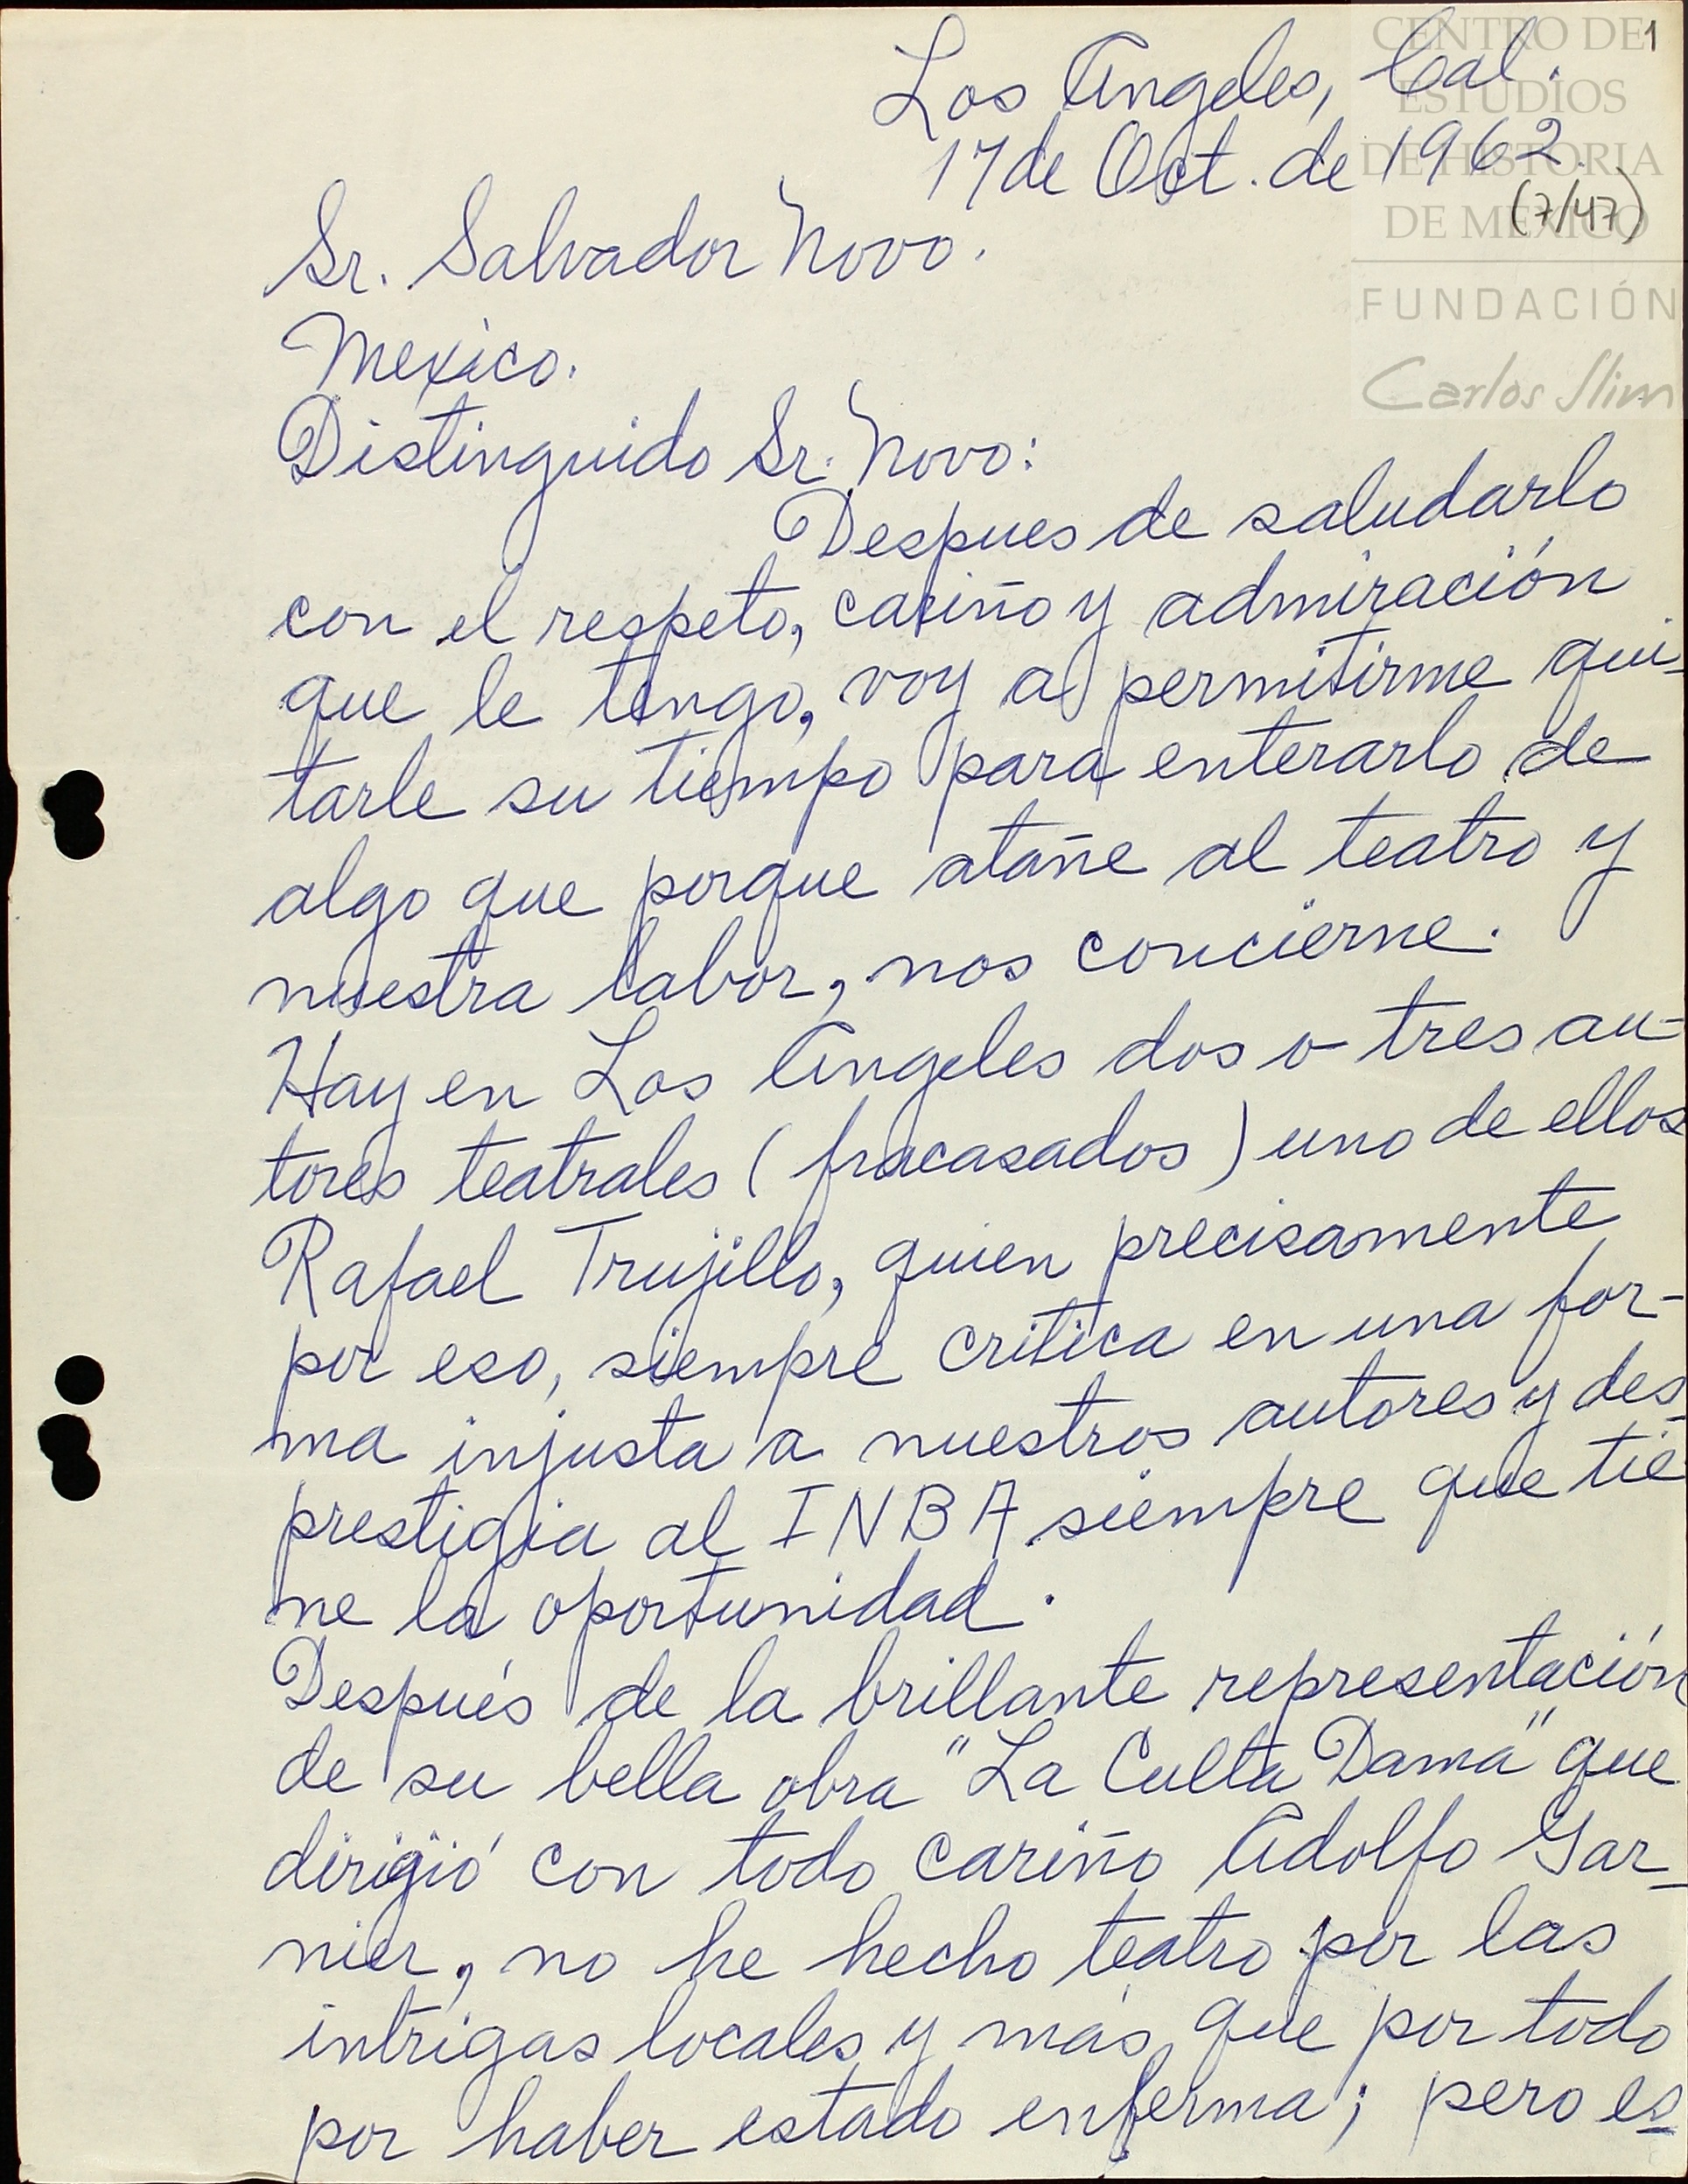 CENTRO DE
ESTUDIOS
DE HISTORIA
DE MEXICO
FUNDACIÓN
Carlos Slim
1
Los Angeles, Cal.
17 de Oct. de 1962.
(7/47)
Sr. Salvador Novo.
Mexico.
Distinguido Sr. Novo:
Despues de saludarlo
con el respeto, cariño y admiración
que le tengo, voy a permitirme qui-
tarle su tiempo para enterarlo de
algo que porque atañe al teatro y
nuestra labor, nos concierne.
Hay en Los Angeles dos o tres au-
tores teatrales (fracasados) uno de ellos
Rafael Trujillo, quien precisamente
por eso, siempre critica en una for-
ma injusta a nuestros autores y des-
prestigia al INBA siempre que tie-
ne la oportunidad.
Después de la brillante representación
de su bella obra "La Culta Dama" que
dirigió con todo cariño Adolfo Gar-
nier, no he hecho teatro por las
intrigas locales y más que por todo
por haber estado enferma; pero es-